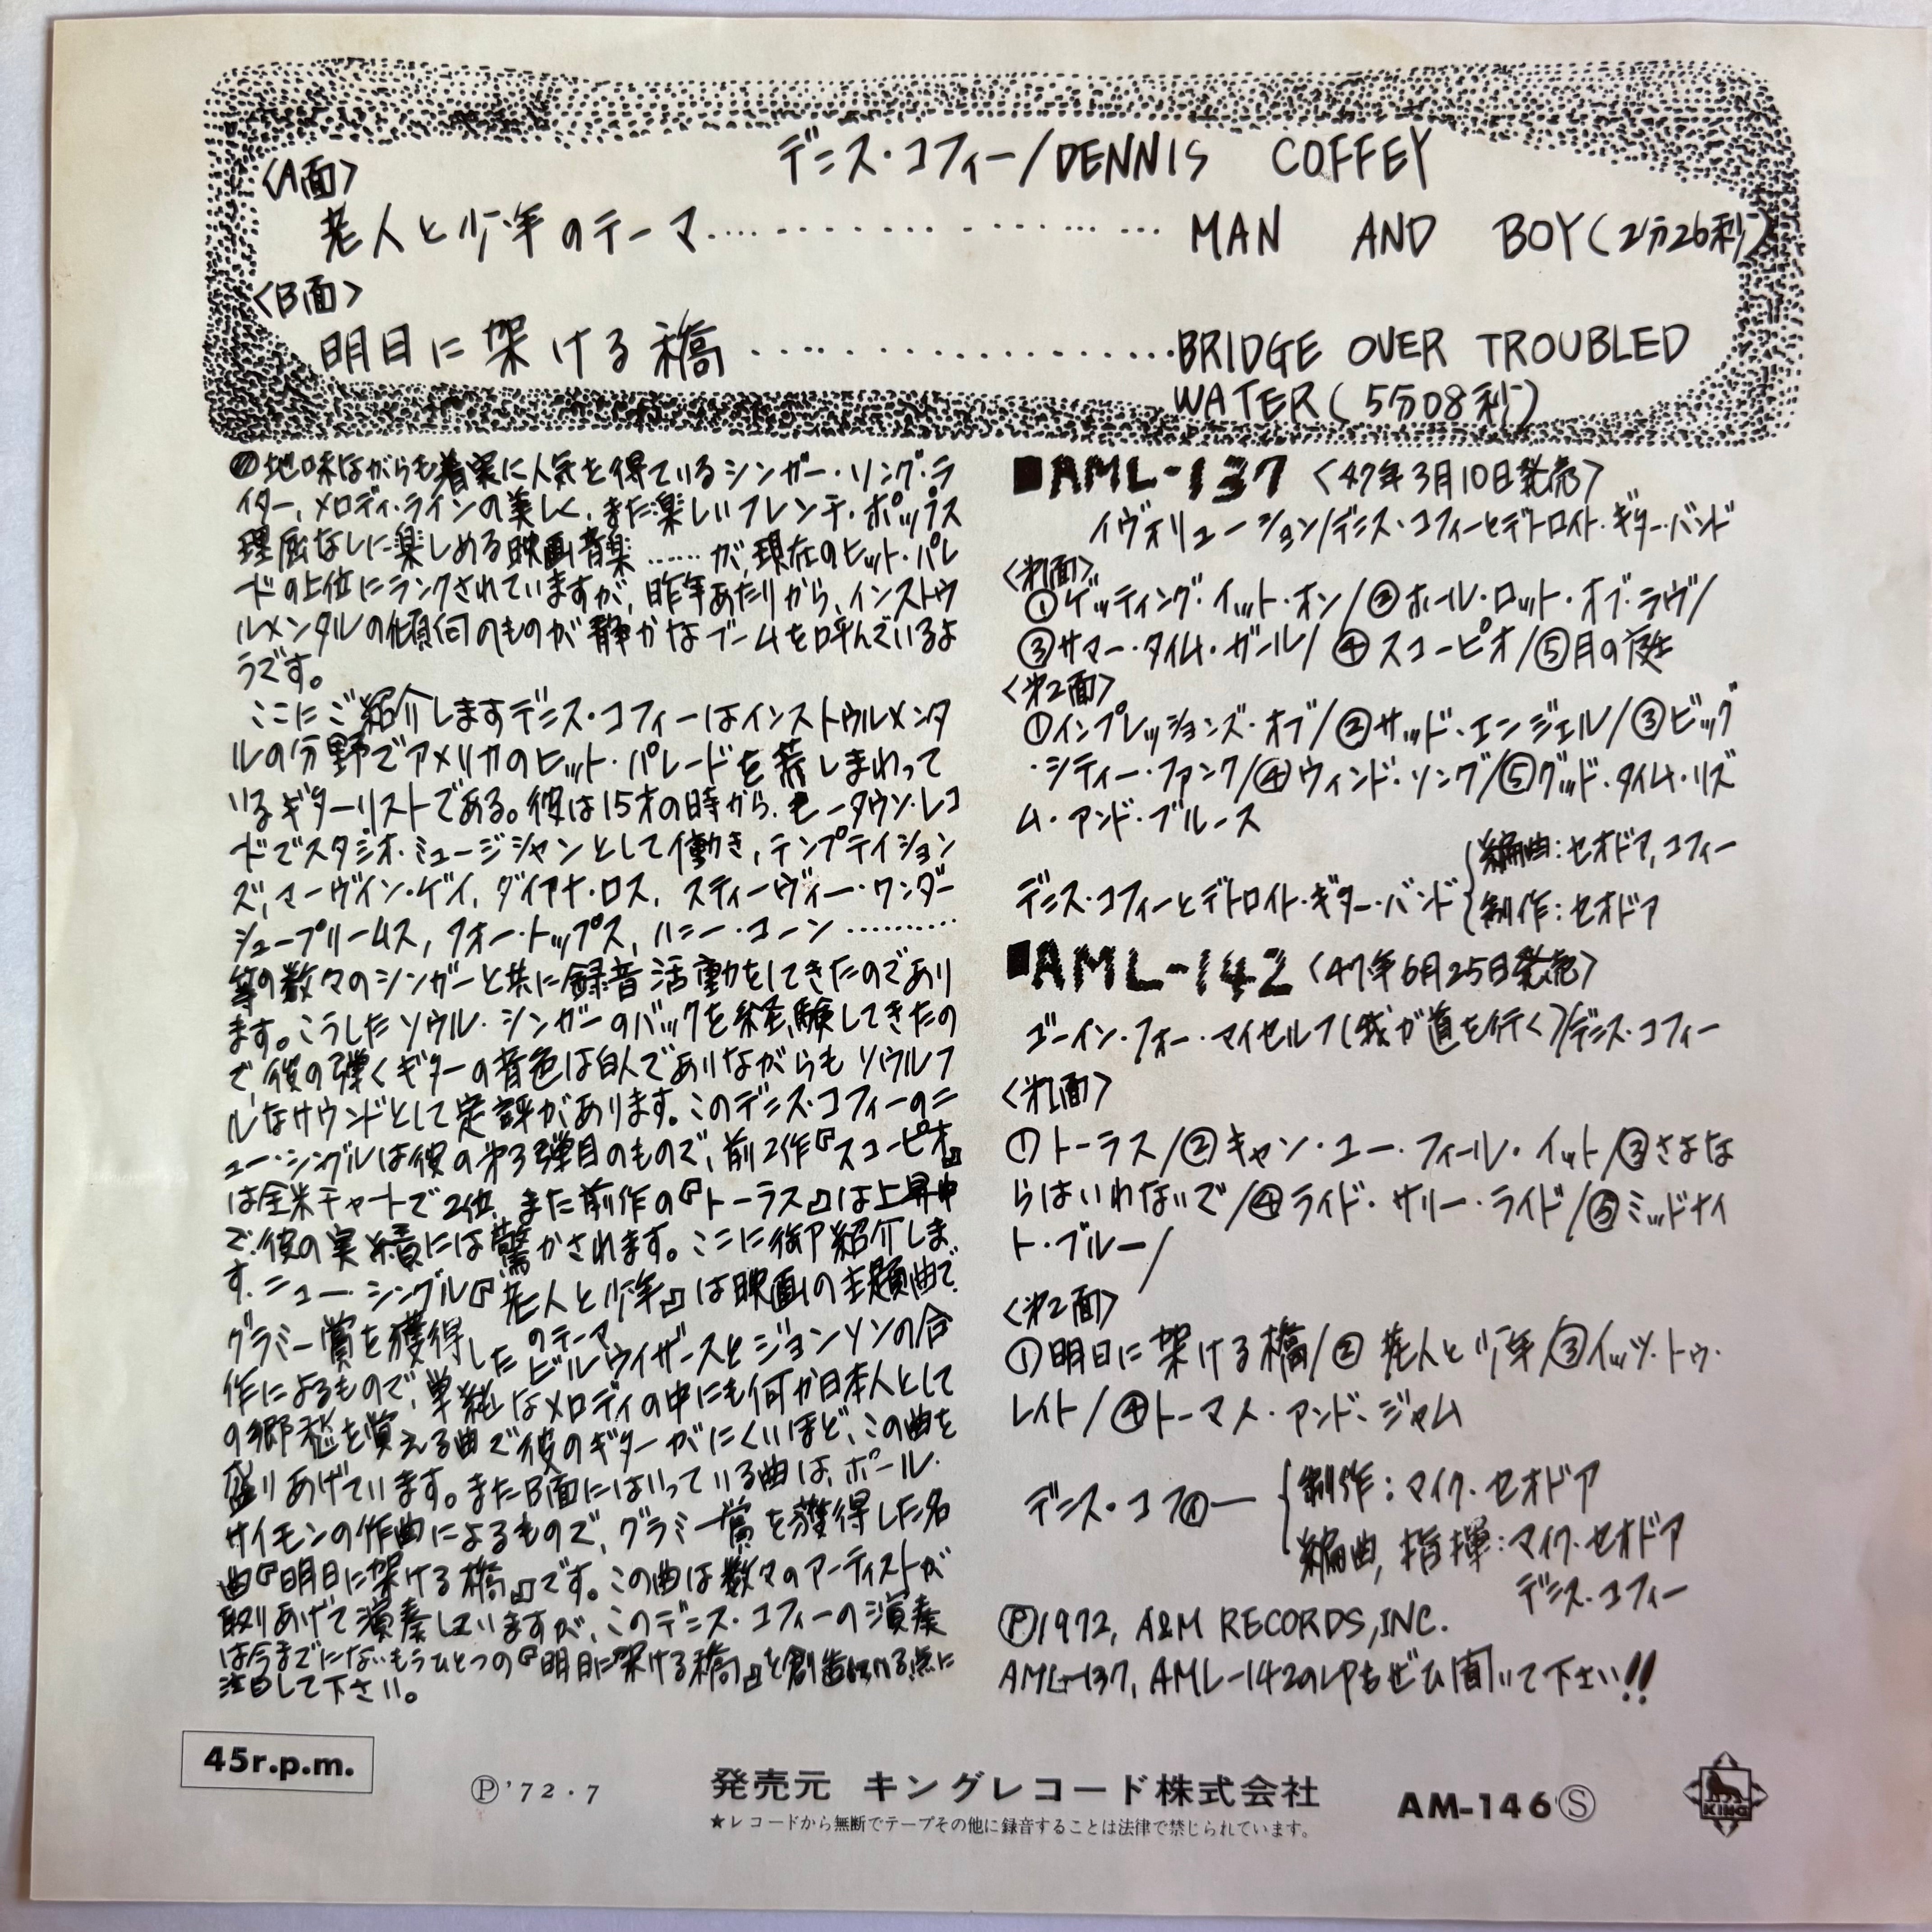 デニス・コフィー/DENNIS COFFEY
〈A面〉
老人と少年のテーマ………………MAN AND BOY(2分26秒)
〈B面〉
明日に架ける橋………………BRIDGE OVER TROUBLED
WATER(5分08秒)
地味ながらも着実に人気を得ているシンガー・ソング・ラ
イター、メロディ・ラインの美しく、また楽しいフレンチ・ポップス
理屈なしに楽しめる映画音楽……が、現在のヒット・パレ
ードの上位にランクされていますが、昨年あたりから、インストゥ
ルメンタルの傾向のものが静かなブームを呼んでいるよ
うです。
ここにご紹介しますデニス・コフィーはインストゥルメンタ
ルの分野でアメリカのヒット・パレードを荒しまわって
いるギターリストである。彼は15才の時から、モータウン・レコ
ードでスタジオ・ミュージシャンとして働き、テンプテイション
ズ、マーヴィン・ゲイ、ダイアナ・ロス、スティーヴィー・ワンダー
シュープリームス、フォー・トップス、ハニー・コーン…………
等の数々のシンガーと共に録音活動をしてきたのであり
ます。こうしたソウル・シンガーのバックを経験してきたの
で彼の弾くギターの音色は白人でありながらもソウルフ
ルなサウンドとして定評があります。このデニス・コフィーのニ
ュー・シングルは彼の第3弾目のもので、前2作『スコーピオ』
は全米チャートで2位、また前作の『トーラス』は上昇中
で、彼の実績には驚かされます。ここに御紹介しま
す、ニュー・シングル『老人と少年』は映画の主題曲で
のテーマ
グラミー賞を獲得したビルウイザースとジョンソンの合
作によるもので、単純なメロディの中にも何か日本人として
の郷愁を覚える曲で彼のギターがにくいほど、この曲を
盛りあげています。またB面にはいっている曲は、ポール・
サイモンの作曲によるもので、グラミー賞を獲得した名
曲『明日に架ける橋』です。この曲は数々のアーティストが
取りあげて演奏していますが、このデニス・コフィーの演奏
は今までにないもうひとつの『明日に架ける橋』を創造している点に
注目して下さい。
■AML-137〈47年3月10日発売〉
イヴォリューション/デニス・コフィーとデトロイト・ギター・バンド
〈第1面〉
①ゲッティング・イット・オン/②ホール・ロット・オブ・ラヴ/
③サマー・タイム・ガール/④スコーピオ/⑤月の庭
〈第2面〉
①インプレッションズ・オブ/②サッド・エンジェル/③ビッグ
・シティー・ファンク/④ウィンド・ソング/⑤グッド・タイム・リズ
ム・アンド・ブルース
デニス・コフィーとデトロイト・ギター・バンド{編曲:セオドア,コフィー
制作:セオドア
■AML-142〈47年6月25日発売〉
ゴーイン・フォー・マイセルフ(我が道を行く)/デニス・コフィー
〈第1面〉
①トーラス/②キャン・ユー・フィール・イット/③さよな
らはいわないで/④ライド・サリー・ライド/⑤ミッドナイ
ト・ブルー/
〈第2面〉
①明日に架ける橋/②老人と少年/③イッツ・トゥ・
レイト/④トーマス・アンド・ジャム
デニス・コフィー{制作:マイク・セオドア
編曲,指揮:マイク・セオドア
デニス・コフィー
Ⓟ1972, A&M RECORDS,INC.
AML-137, AML-142のLPもぜひ聞いて下さい!!
45r.p.m.
Ⓟ'72・7
発売元 キングレコード株式会社
AM-146Ⓢ
KING
★レコードから無断でテープその他に録音することは法律で禁じられています。